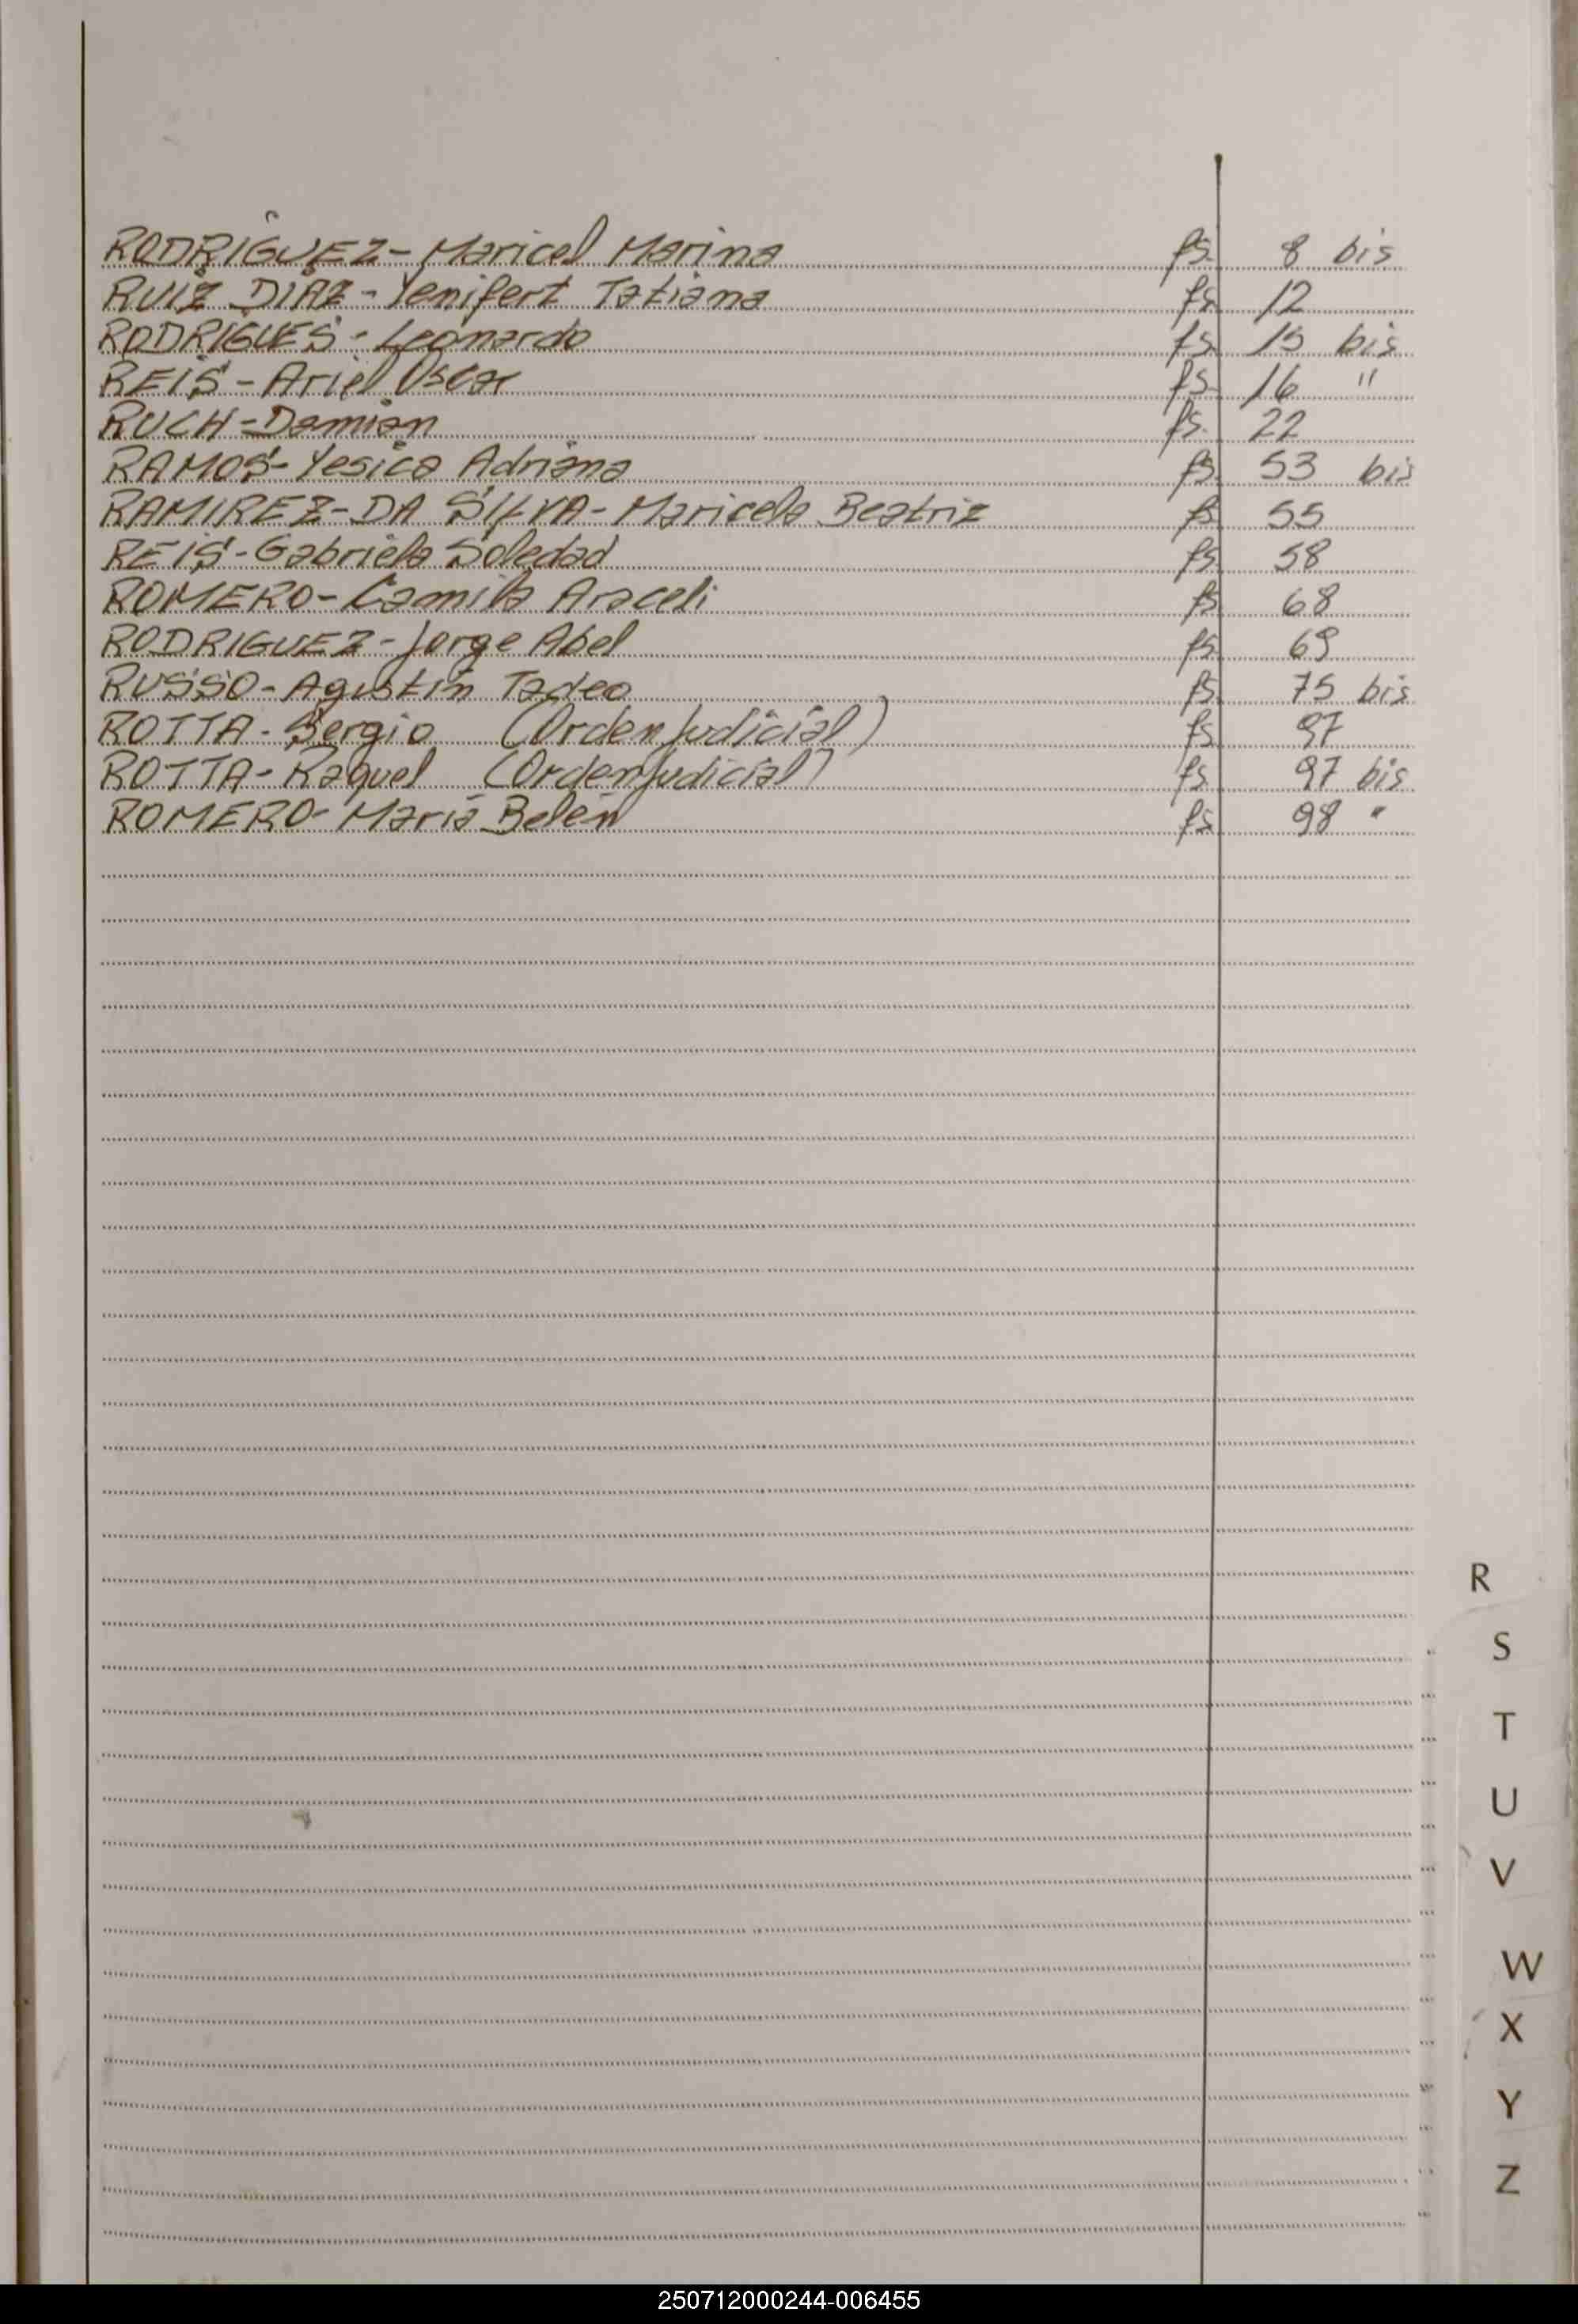 RODRIGUEZ- Maricel Marina fs. 8 bis
RUIZ DIAZ- Yenifert Tatiana fs. 12
RODRIGUES- Leonardo fs. 15 bis
REIS- Ariel Oscar fs. 16 "
RUCH- Damian fs. 22
RAMOS- Yesica Adriana fs. 53 bis
RAMIREZ-DA SILVA- Maricela Beatriz fs 55
REIS- Gabriela Soledad fs. 58
ROMERO- Camila Araceli fs 68
RODRIGUEZ- Jorge Abel fs. 69
RUSSO- Agustín Tadeo fs. 75 bis
ROTTA- Sergio (Orden Judicial) fs 97
ROTTA- Raquel (Orden Judicial) fs 97 bis
ROMERO- María Belén fs 98 "
R
S
T
U
V
W
X
Y
Z
250712000244-006455